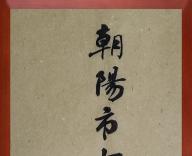 朝陽市